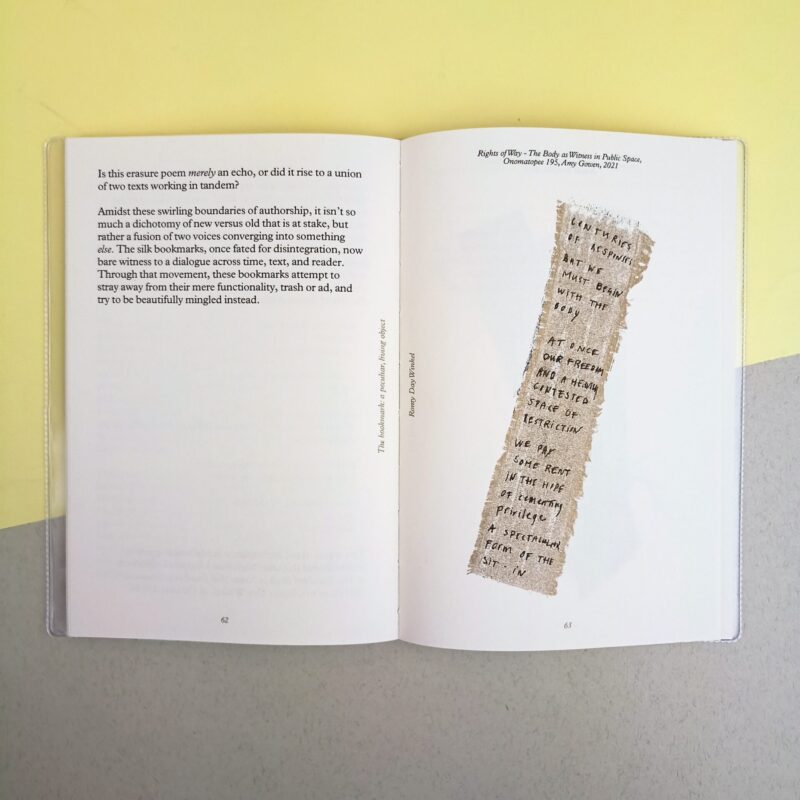 Is this erasure poem merely an echo, or did it rise to a union
of two texts working in tandem?
Amidst these swirling boundaries of authorship, it isn't so
much a dichotomy of new versus old that is at stake, but
rather a fusion of two voices converging into something
else. The silk bookmarks, once fated for disintegration, now
bare witness to a dialogue across time, text, and reader.
Through that movement, these bookmarks attempt to
stray away from their mere functionality, trash or ad, and
try to be beautifully mingled instead.
The bookmark: a peculiar, living object
62
Romy Day Winkel
Rights of Way - The Body as Witness in Public Space,
Onomatopee 195, Amy Gowen, 2021
CENTURIES
OF RESPONSES
BUT WE
MUST BEGIN
WITH THE
BODY
AT ONCE
OUR FREEDOM
AND A
CONTESTED
SPACE OF
RESTRICTION
WE PAY
SOME RENT
IN THE HOPE
OF cementing
privilege
A SPECTACULAR
FORM OF THE
SIT - IN
63